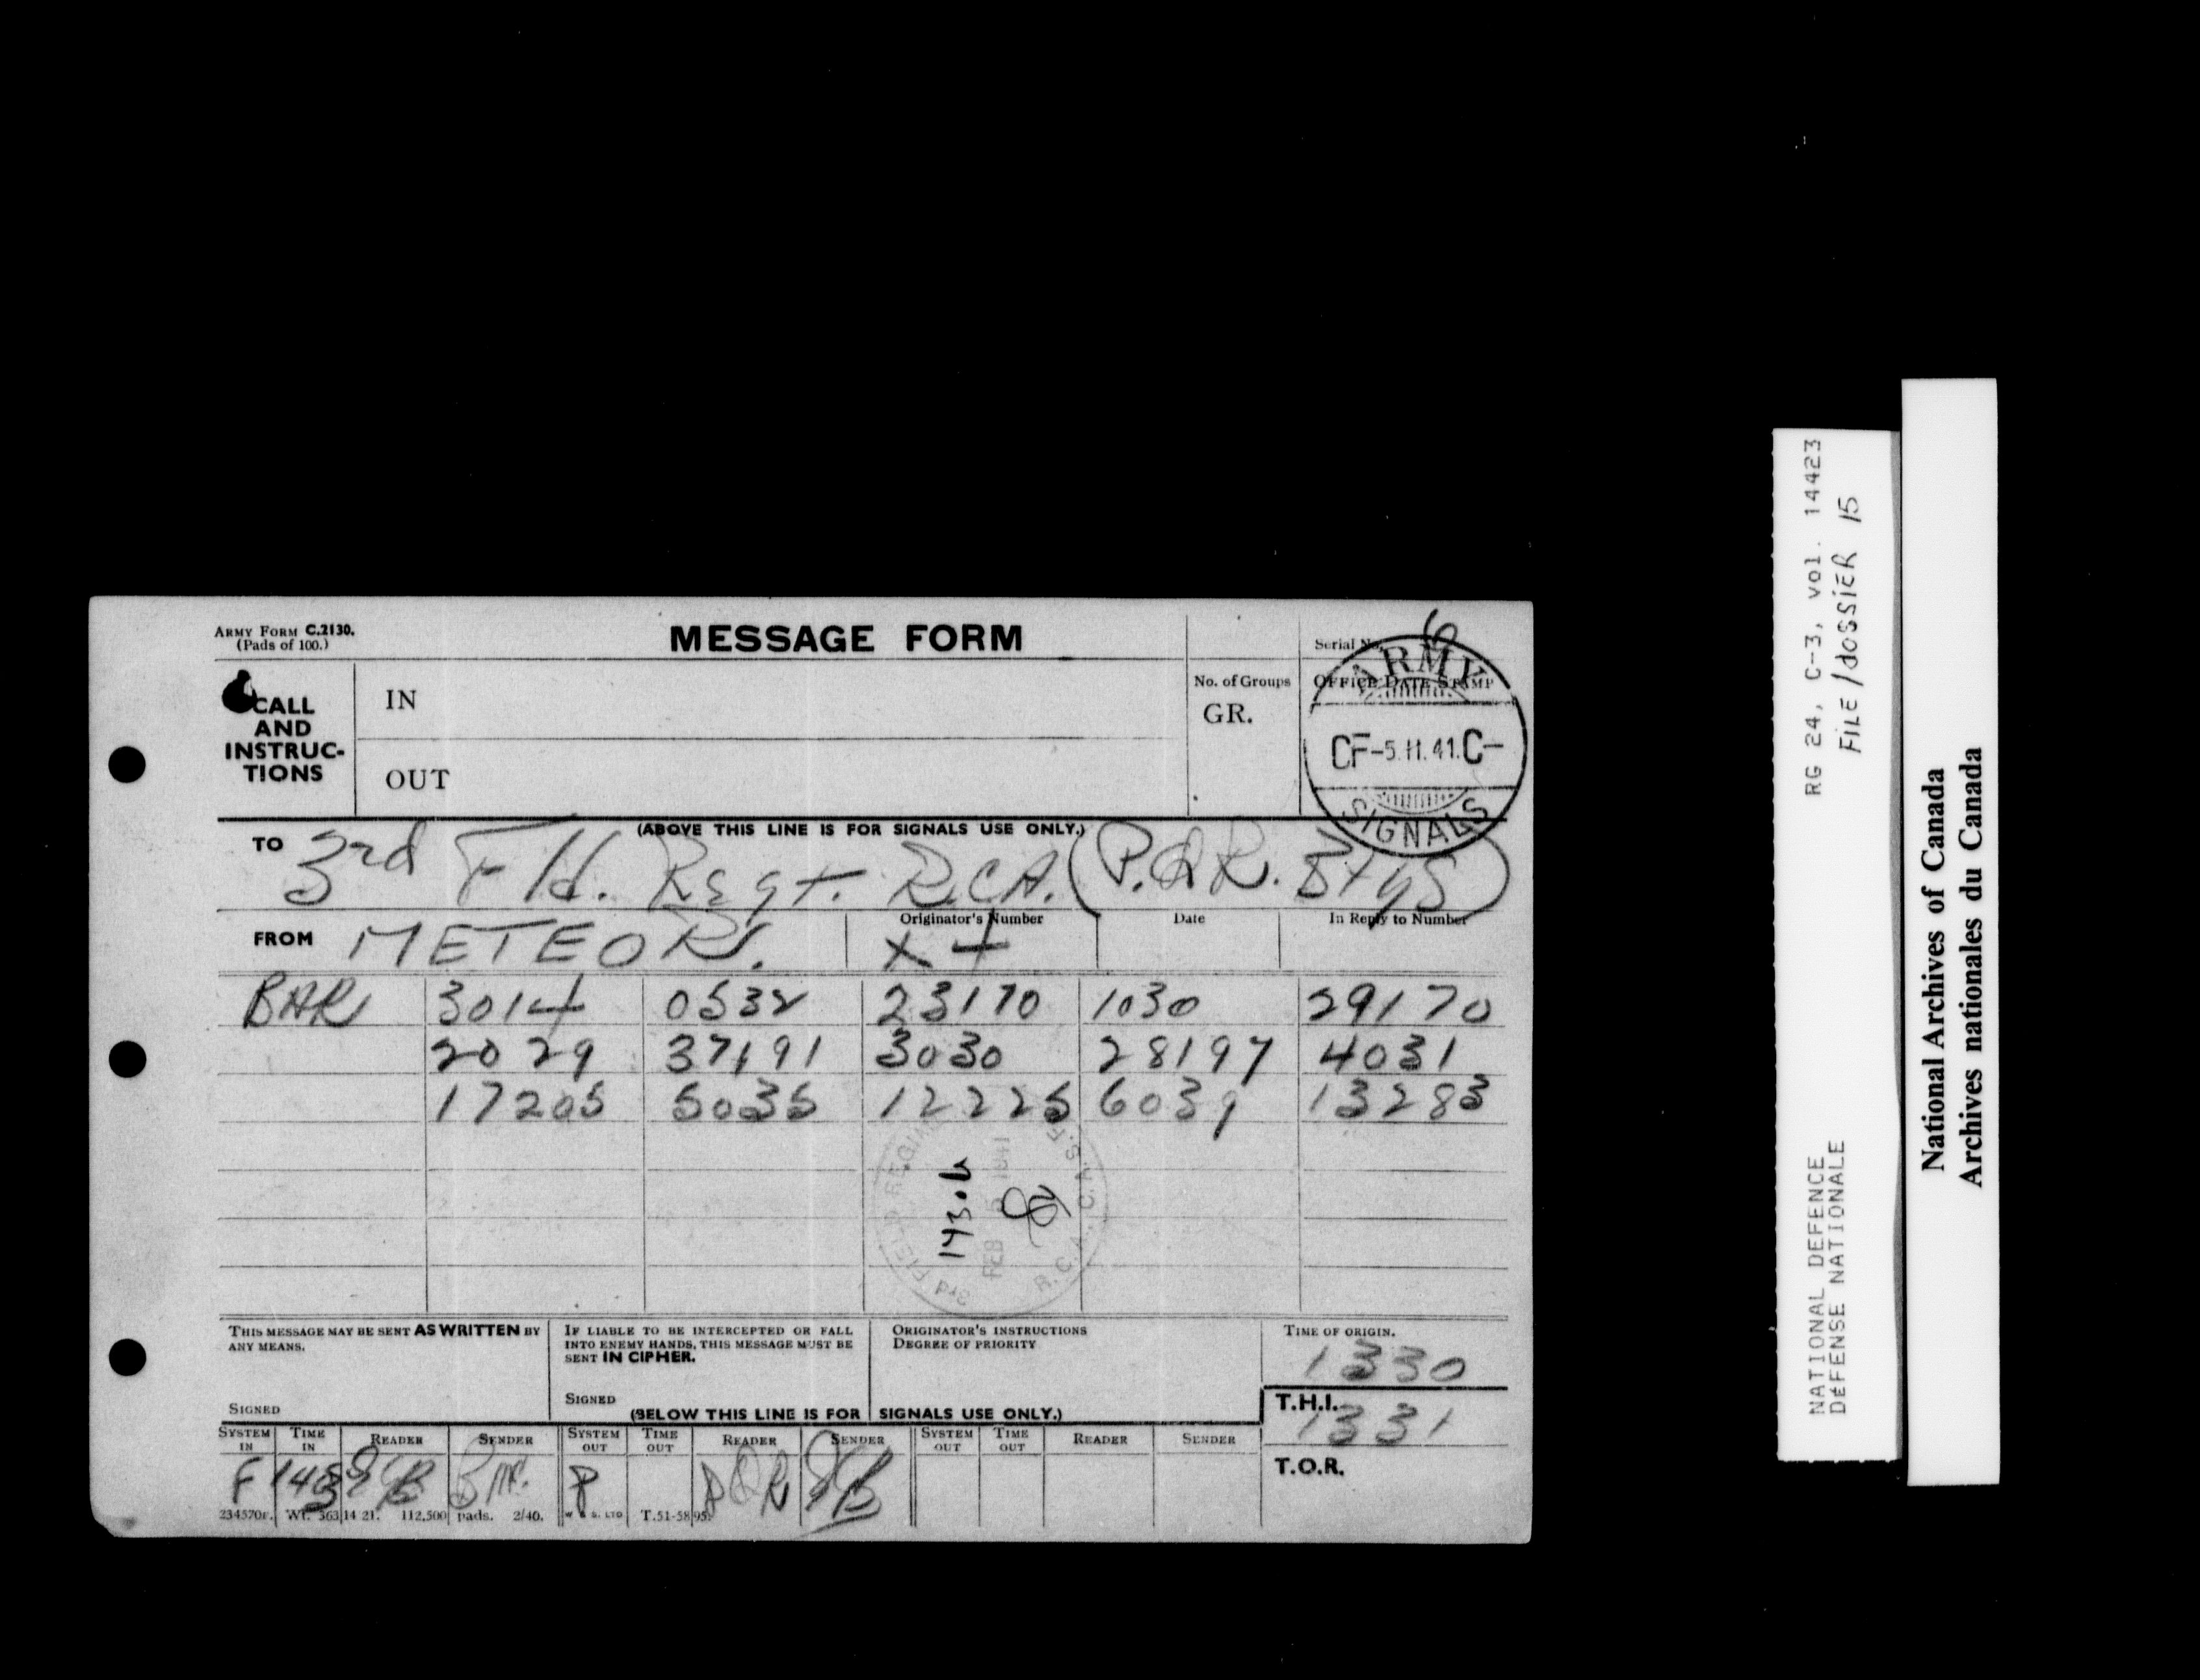 ARMY FORM C.2130.
(Pads of 100.)
MESSAGE FORM
Serial No. 6
CALL AND INSTRUC-TIONS
IN
OUT
No. of Groups
GR.
OFFICE DATE STAMP
ARMY
CF-5.II.41.C-
SIGNALS
(ABOVE THIS LINE IS FOR SIGNALS USE ONLY.)
TO 3rd Fd. Regt. R.C.A. (P.&R. Btys)
FROM METEOR.
Originator's Number
Date
In Reply to Number
BAR 3014 0532 23170 1030 29170
2029 37191 3030 28197 4031
17205 5035 12225 6039 13283
143.b
3rd FIELD REGIME
FEB 1941
R.C.A. C.A.S.F.
THIS MESSAGE MAY BE SENT AS WRITTEN BY
ANY MEANS.
SIGNED
IF LIABLE TO BE INTERCEPTED OR FALL
INTO ENEMY HANDS, THIS MESSAGE MUST BE
SENT IN CIPHER.
SIGNED
ORIGINATOR'S INSTRUCTIONS
DEGREE OF PRIORITY
TIME OF ORIGIN.
1330
T.H.I.
1331
T.O.R.
(BELOW THIS LINE IS FOR SIGNALS USE ONLY.)
SYSTEM IN TIME IN READER SENDER SYSTEM OUT TIME OUT READER SENDER SYSTEM OUT TIME OUT READER SENDER
F
234570F. Wt. 363 14 21. 112,500 pads. 2/40. W & S. LTD T.51-5895.
RG 24, C-3, vol. 14423
FILE/dOSSiER 15
NATIONAL DEFENCE
DéFENSE NATIONALE
National Archives of Canada
Archives nationales du Canada